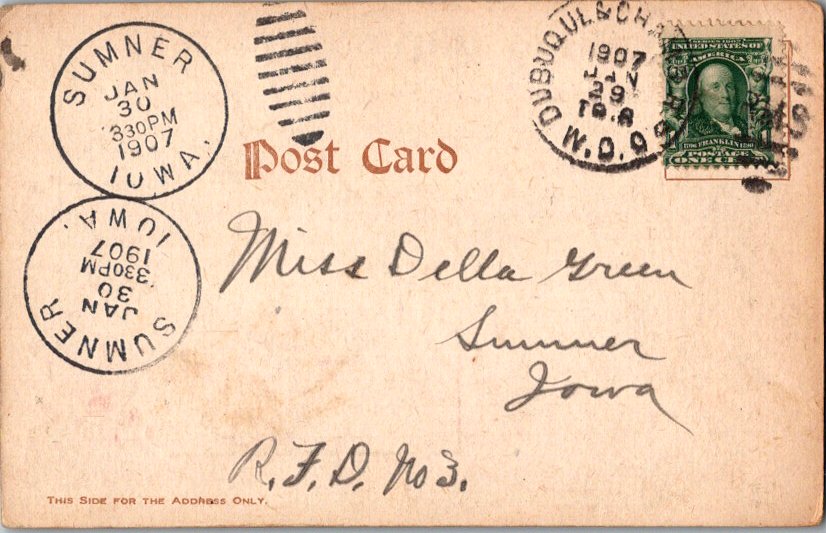 SUMNER
JAN
30
330PM
1907
IOWA.
DUBUQUE &
1907
JAN
29
M.D.O
SERIES 1902
UNITED STATES OF
AMERICA
FRANKLIN
POSTAGE
Post Card
SUMNER
JAN
30
330PM
1907
IOWA.
Miss Della Green
Sumner
Iowa
R.F.D. No 3.
THIS SIDE FOR THE ADDRESS ONLY.